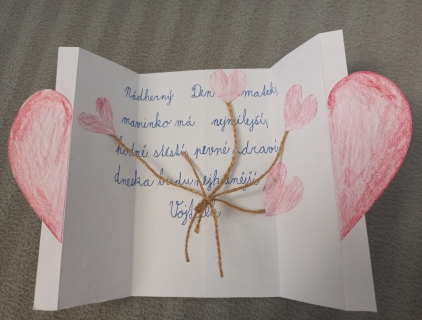 Nádherný Den matek,
maminko má nejmilejší,
hodně štěstí, pevné zdraví
dneska budu nejhodnější
Vojtíšek